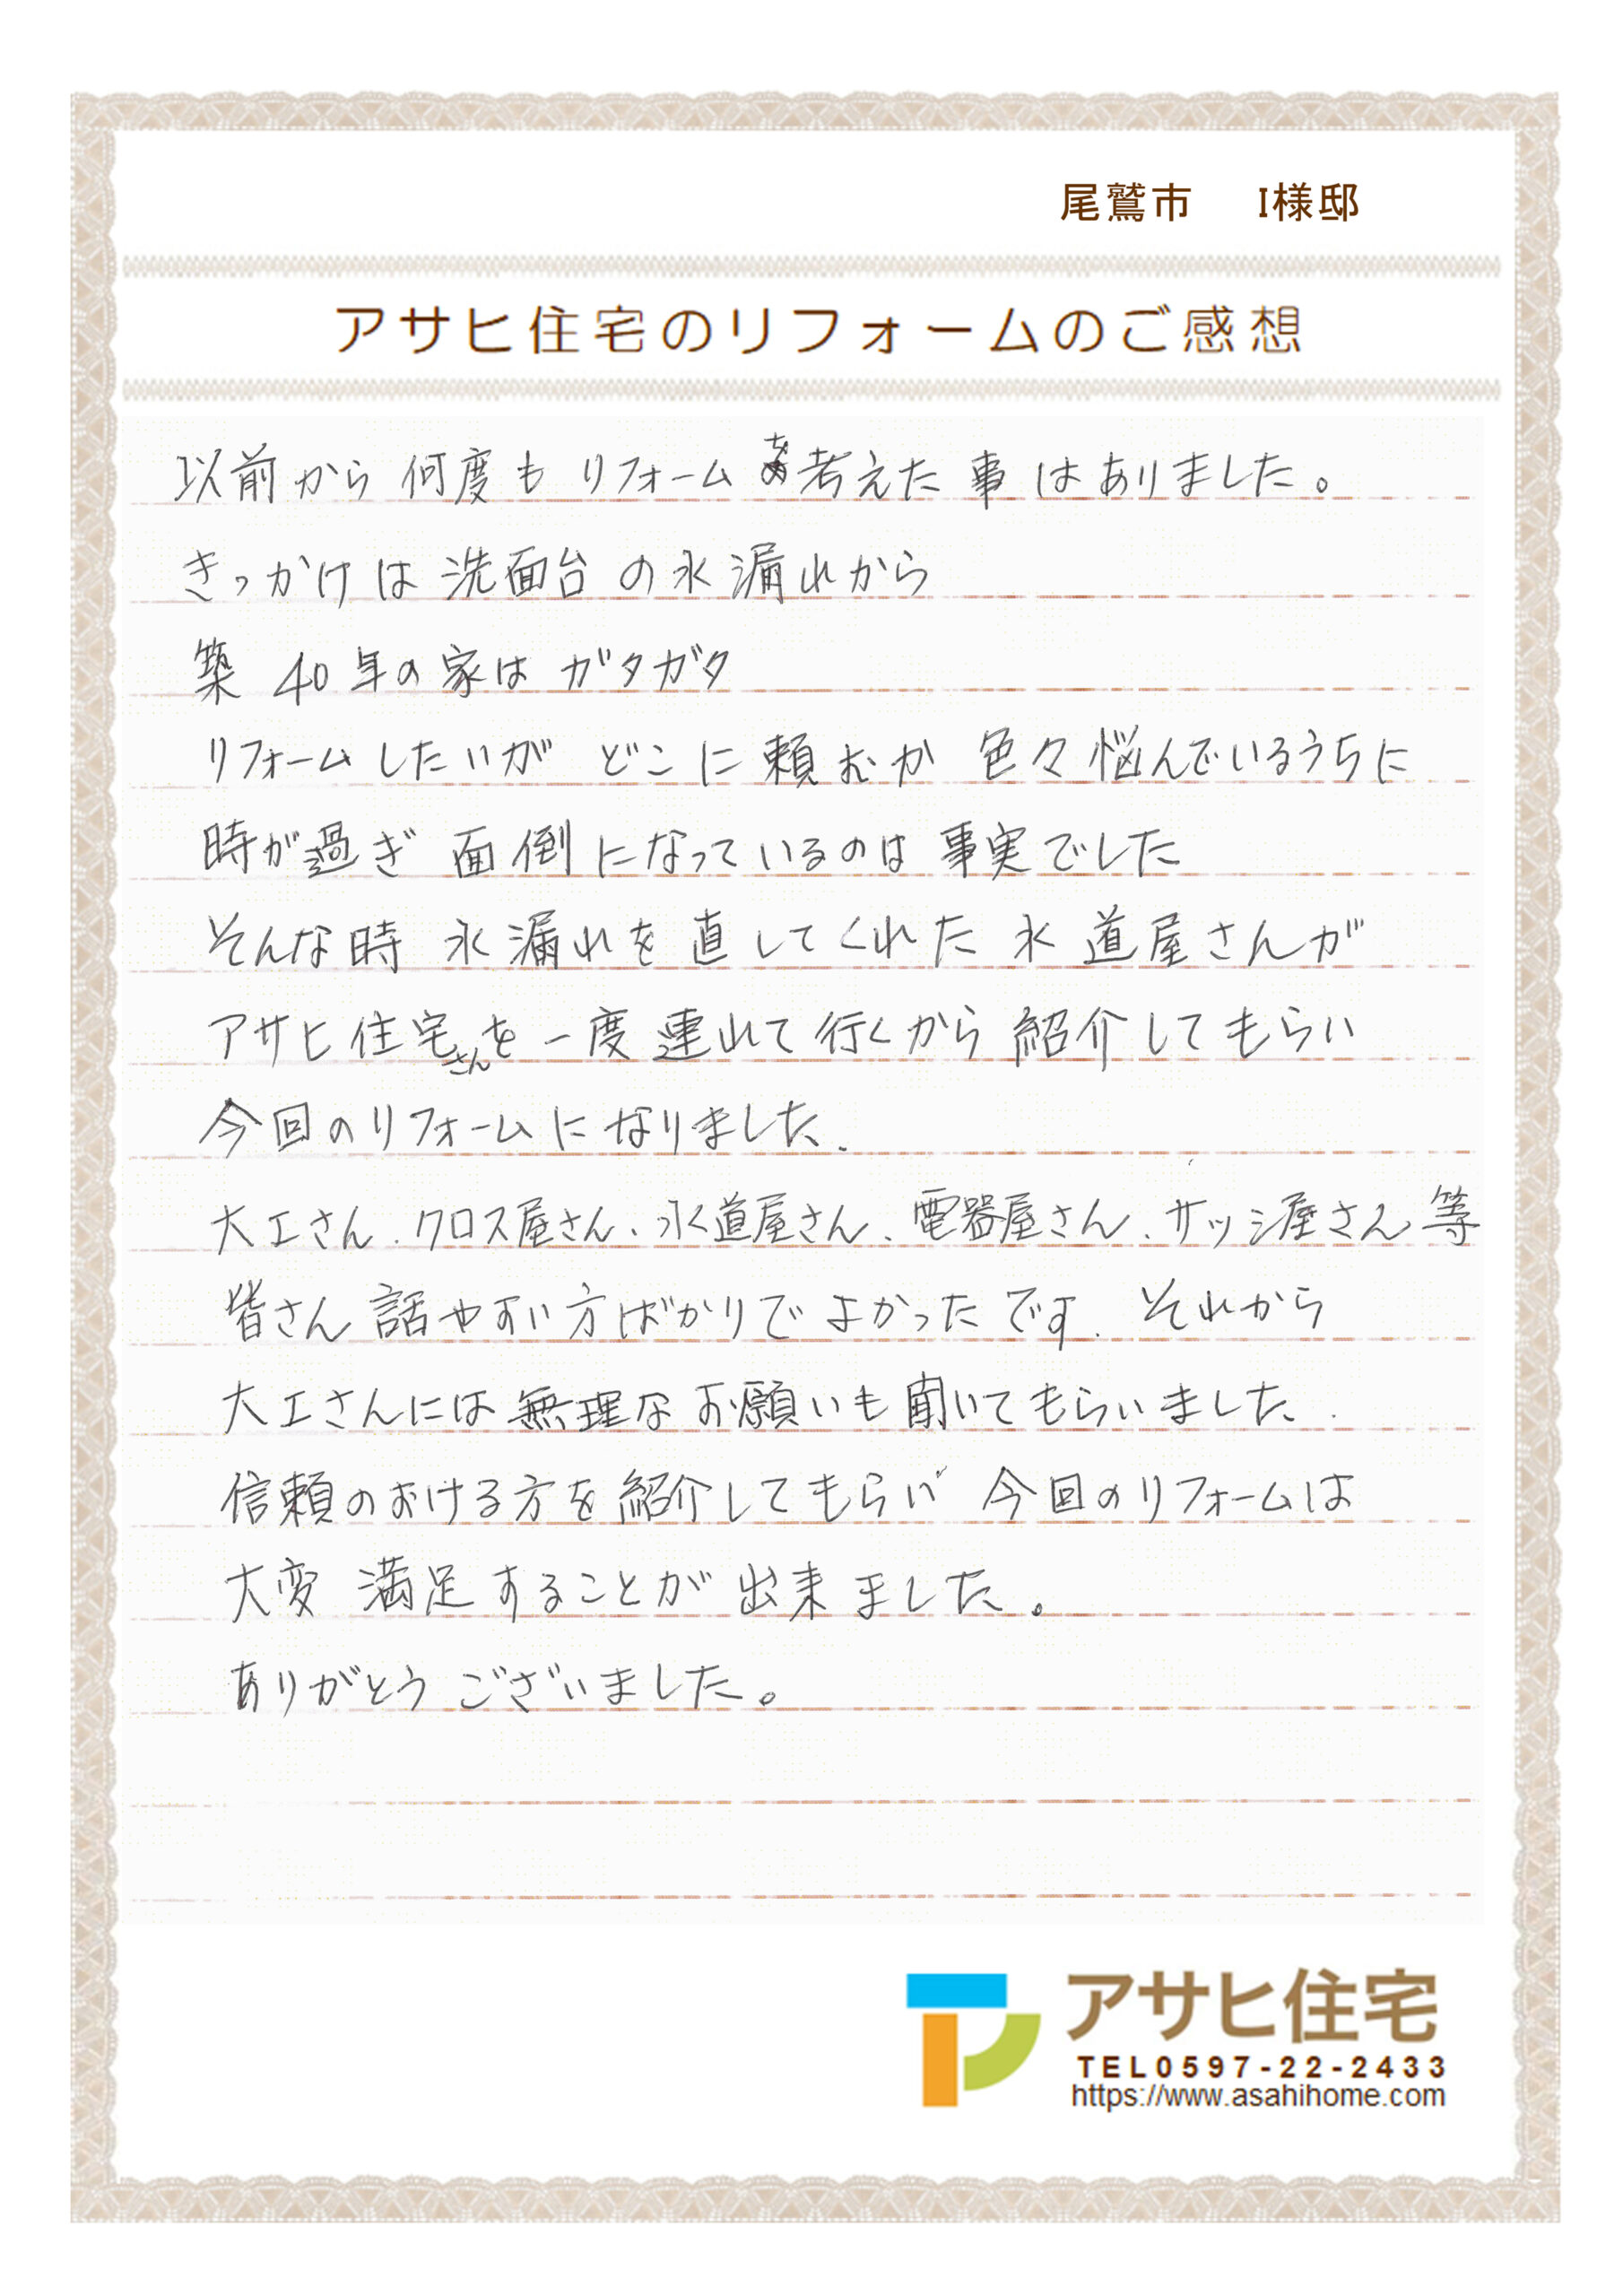 尾鷲市 I様邸
アサヒ住宅のリフォームのご感想
以前から何度もリフォームを考えた事はありました。
きっかけは洗面台の水漏れから
築40年の家はガタガタ
リフォームしたいが どこに頼むか 色々悩んでいるうちに
時が過ぎ 面倒になっているのは事実でした
そんな時 水漏れを直してくれた水道屋さんが
アサヒ住宅さんを一度連れて行くから紹介してもらい
今回のリフォームになりました.
大工さん、クロス屋さん、水道屋さん、電器屋さん、サッシ屋さん等
皆さん話やすい方ばかりでよかったです. それから
大工さんには無理なお願いも聞いてもらいました.
信頼のおける方を紹介してもらい 今回のリフォームは
大変満足することが出来ました。
ありがとうございました。
アサヒ住宅
TEL0597-22-2433
https://www.asahihome.com